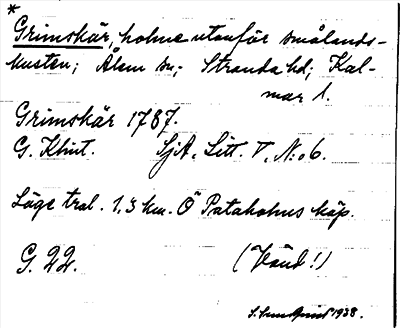 *
Grimskär, holme utanför smålands-
kusten; Ålem sn; Stranda hd; Kal-
mar l.
Grimskär 1787.
G. Klint. SjA, Litt. T, N:o 6.
Läge tral. 1,3 km. Ö Pataholms köp.
G. 22. (Vänd!)
S. Lundqvist 1938.